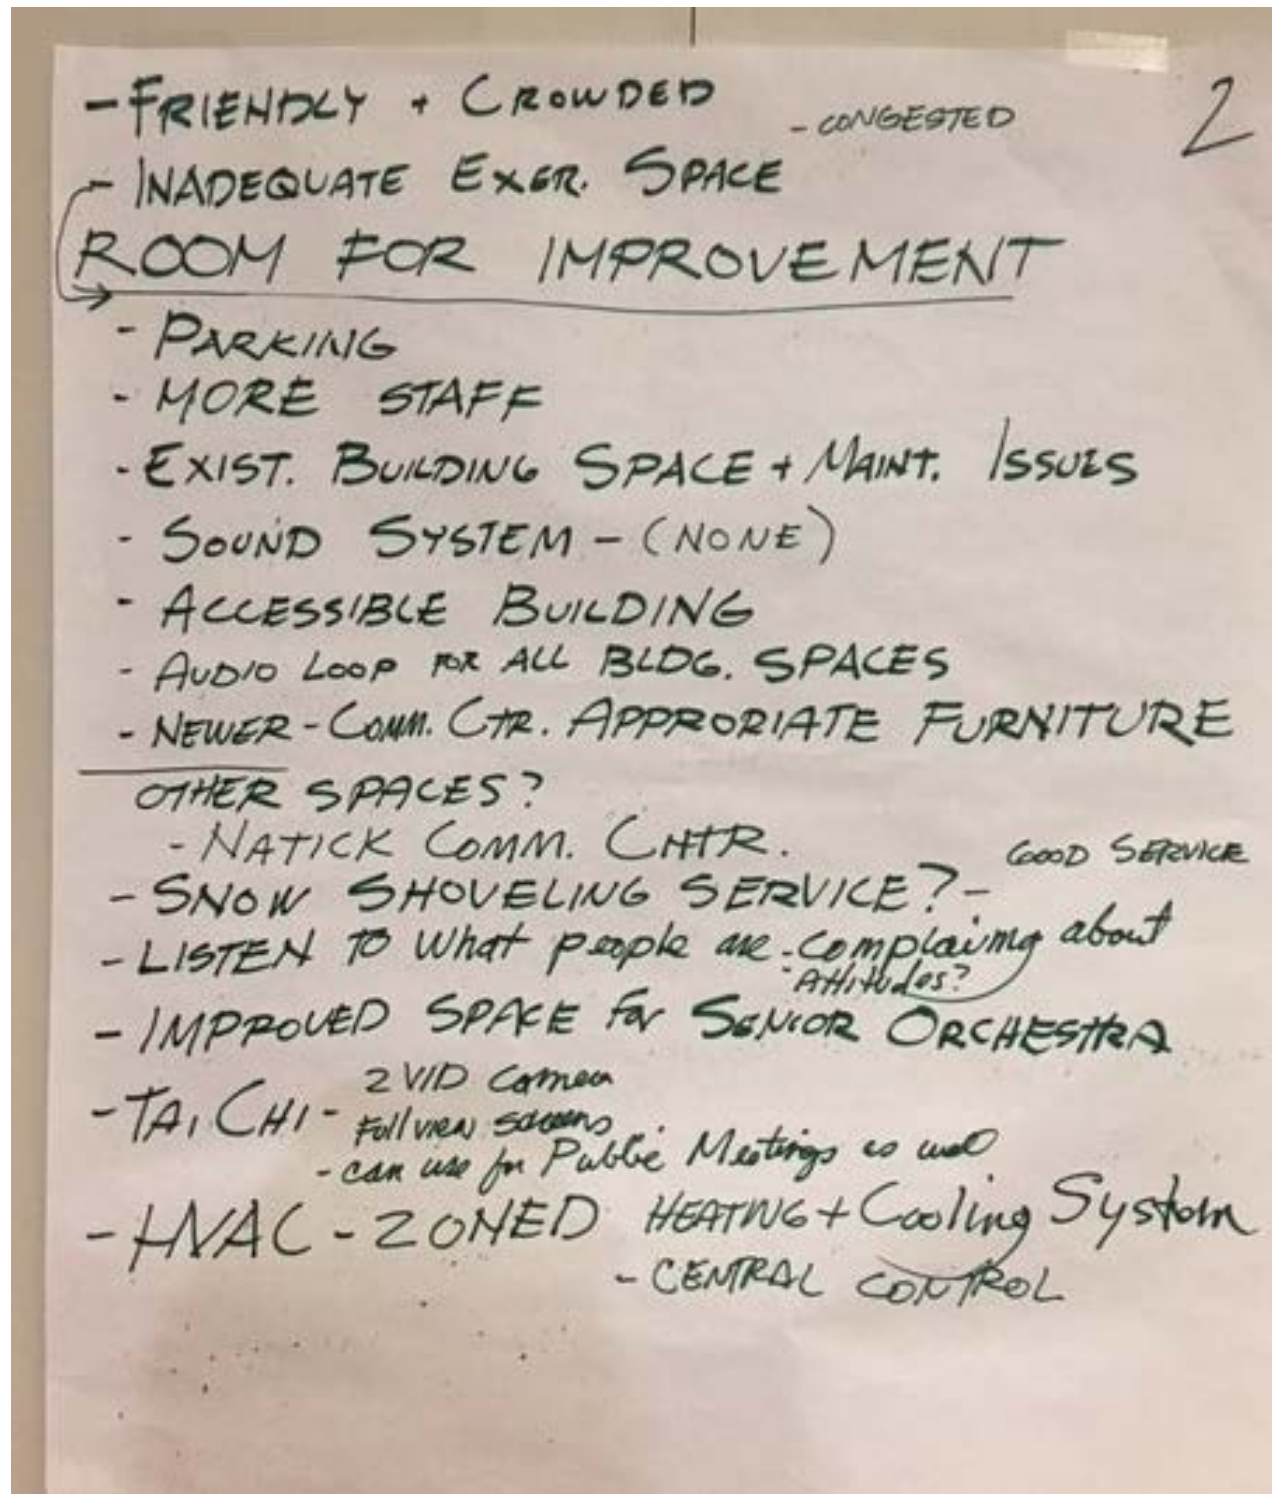 - FRIENDLY + CROWDED - CONGESTED
2
- INADEQUATE EXER. SPACE
ROOM FOR IMPROVEMENT
- PARKING
- MORE STAFF
- EXIST. BUILDING SPACE + MAINT. ISSUES
- SOUND SYSTEM - (NONE)
- ACCESSIBLE BUILDING
- AUDIO LOOP FOR ALL BLDG. SPACES
- NEWER - COMM. CTR. APPRORIATE FURNITURE
OTHER SPACES?
- NATICK COMM. CNTR.
- SNOW SHOVELING SERVICE? - GOOD SERVICE
- LISTEN TO What people are - complaining about
- Attitudes?
- IMPROVED SPACE for SENIOR ORCHESTRA
- TAI CHI - 2 VID Camera
Full view screens
- can use for Public Meetings as well
- HVAC - ZONED HEATING + Cooling System
- CENTRAL CONTROL